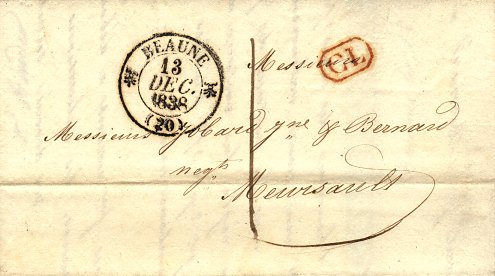 BEAUNE
13
DEC.
1838
(20)
CL
Messieurs
Messieurs Jobard jne & Bernard
negts
Meursault